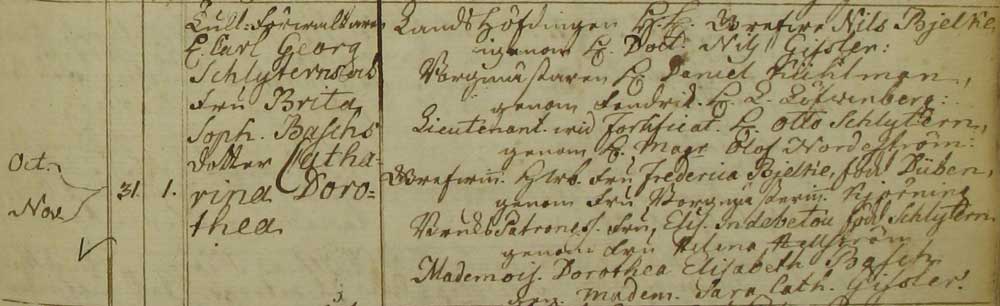 Tull-Förvaltaren
H. Carl Georg
Schlyterns och
Fru Brita
Soph. Baschs
dotter Catha-
rina Doro-
thea
Oct.
Nov.
31. 1.
Landshöfdingen H. H. Grefve Nils Bjelke,
igenom H. Doct: Nils Gissler:
Borgmästaren H. Daniel Kühlman,
genom Fendrik. H. L. Löfvenberg:
Lieutenant. wid Fortificat. H. Otto Schlytern,
genom H. Magr. Olof Nordeström:
Grefvin: Fru Frederica Bjelke, född Düben,
genom Fru Borgmästarin:
Bruks Patroness. Fru, Elis. Indebetou född Schlytern
genom Fru Helena Hellström
Mademois. Dorothea Elisabeth Basch
Madem. Sara Cath. Gissler.